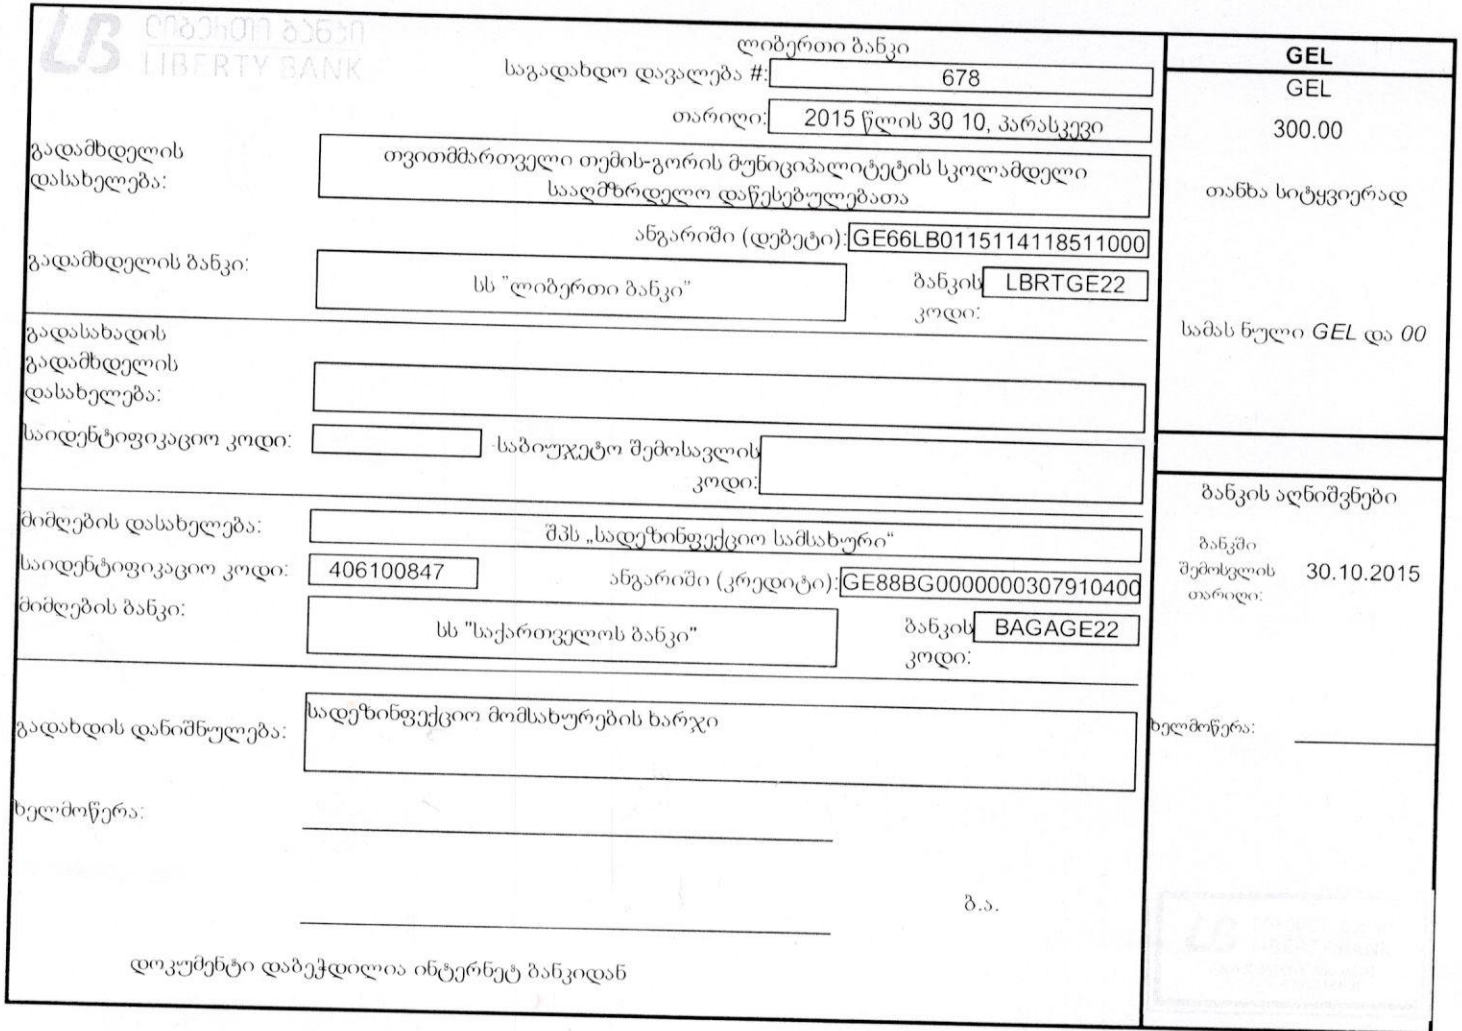 ლიბერთი ბანკი
LIBERTY BANK
ლიბერთი ბანკი
საგადახდო დავალება #: 678
თარიღი: 2015 წლის 30 10, პარასკევი
გადამხდელის
დასახელება:
თვითმმართველი თემის-გორის მუნიციპალიტეტის სკოლამდელი
სააღმზრდელო დაწესებულებათა
ანგარიში (დებეტი): GE66LB0115114118511000
გადამხდელის ბანკი: სს "ლიბერთი ბანკი"
ბანკის LBRTGE22
კოდი:
გადასახადის
გადამხდელის
დასახელება:
საიდენტიფიკაციო კოდი: საბიუჯეტო შემოსავლის
კოდი:
მიმღების დასახელება: შპს „სადეზინფექციო სამსახური“
საიდენტიფიკაციო კოდი: 406100847 ანგარიში (კრედიტი): GE88BG0000000307910400
მიმღების ბანკი: სს "საქართველოს ბანკი"
ბანკის BAGAGE22
კოდი:
გადახდის დანიშნულება: სადეზინფექციო მომსახურების ხარჯი
ხელმოწერა:
ბ.ა.
დოკუმენტი დაბეჭდილია ინტერნეტ ბანკიდან
GEL
GEL
300.00
თანხა სიტყვიერად
სამას ნული GEL და 00
ბანკის აღნიშვნები
ბანკში
შემოსვლის 30.10.2015
თარიღი:
ხელმოწერა: